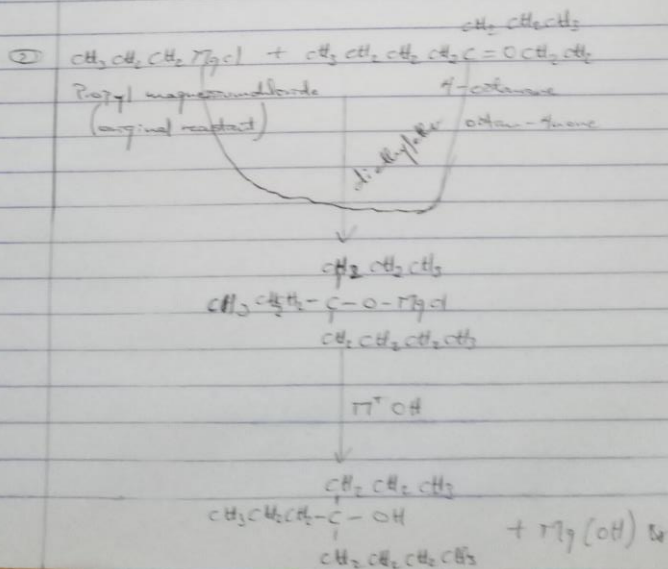 CH₂ CH₂CH₃
② CH₃ CH₂ CH₂ MgCl + CH₃ CH₂ CH₂ CH₂C = OCH₂ CH₂
Propyl magnesiumchloride 4-octanone
(original reactant) octan-4none
diethylether
CH₂ CH₂ CH₃
CH₃ CH₂CH₂ - C - O - MgCl
CH₂ CH₂ CH₂ CH₃
OH
CH₂ CH₂ CH₃
CH₃CH₂CH₂ - C - OH
+ Mg(OH)
CH₂ CH₂ CH₂ CH₃